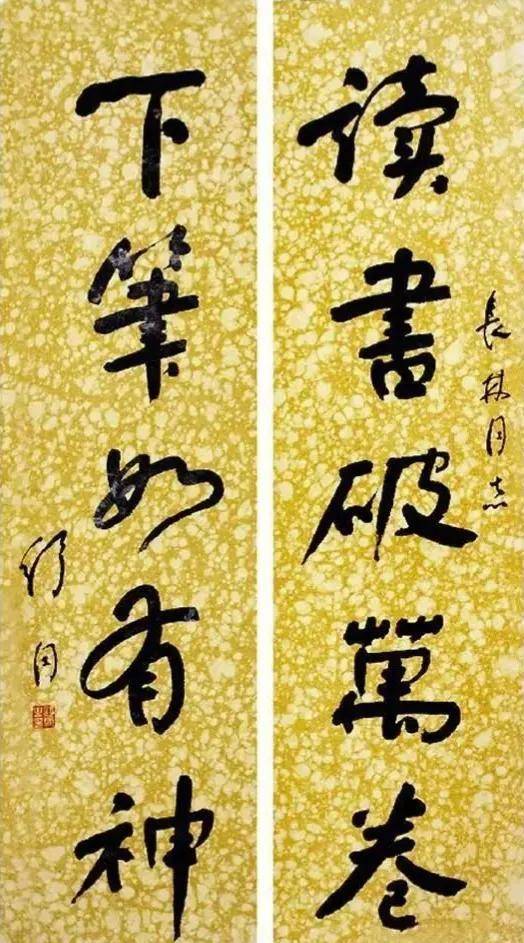 读書破萬卷
長林同志
下筆如有神
舒同